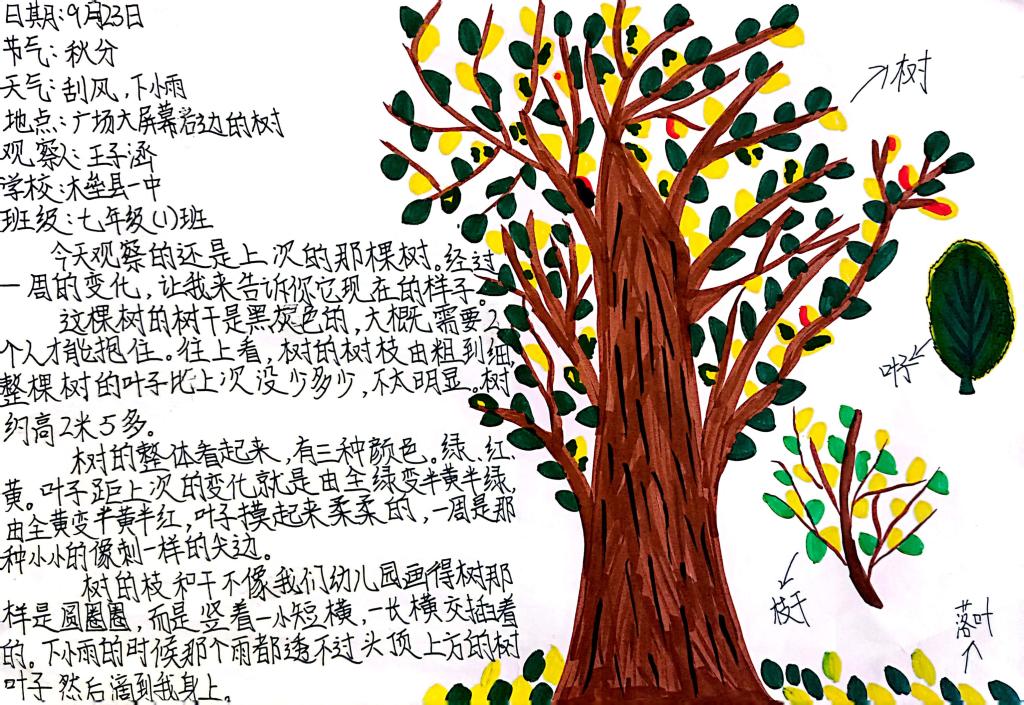 日期:9月23日
节气:秋分
天气:刮风,下小雨
地点:广场大屏幕右边的树
观察人:王子涵
学校:木垒县一中
班级:七年级(1)班
今天观察的还是上次的那棵树。经过
一周的变化,让我来告诉你它现在的样子。
这棵树的树干是黑灰色的,大概需要2
个人才能抱住。往上看,树的树枝由粗到细,
整棵树的叶子比上次没少多少,不太明显。树
约高2米5多。
树的整体看起来,有三种颜色。绿、红、
黄。叶子距上次的变化就是由全绿变半黄半绿,
由全黄变半黄半红,叶子摸起来柔柔的,一周是那
种小小的像刺一样的尖边。
树的枝和干不像我们幼儿园画得树那
样是圆圈圈,而是竖着一小短横,一长横交插着
的。下小雨的时候那个雨都透不过头顶上方的树
叶子然后滴到我身上。
树
叶子
枝干
落叶